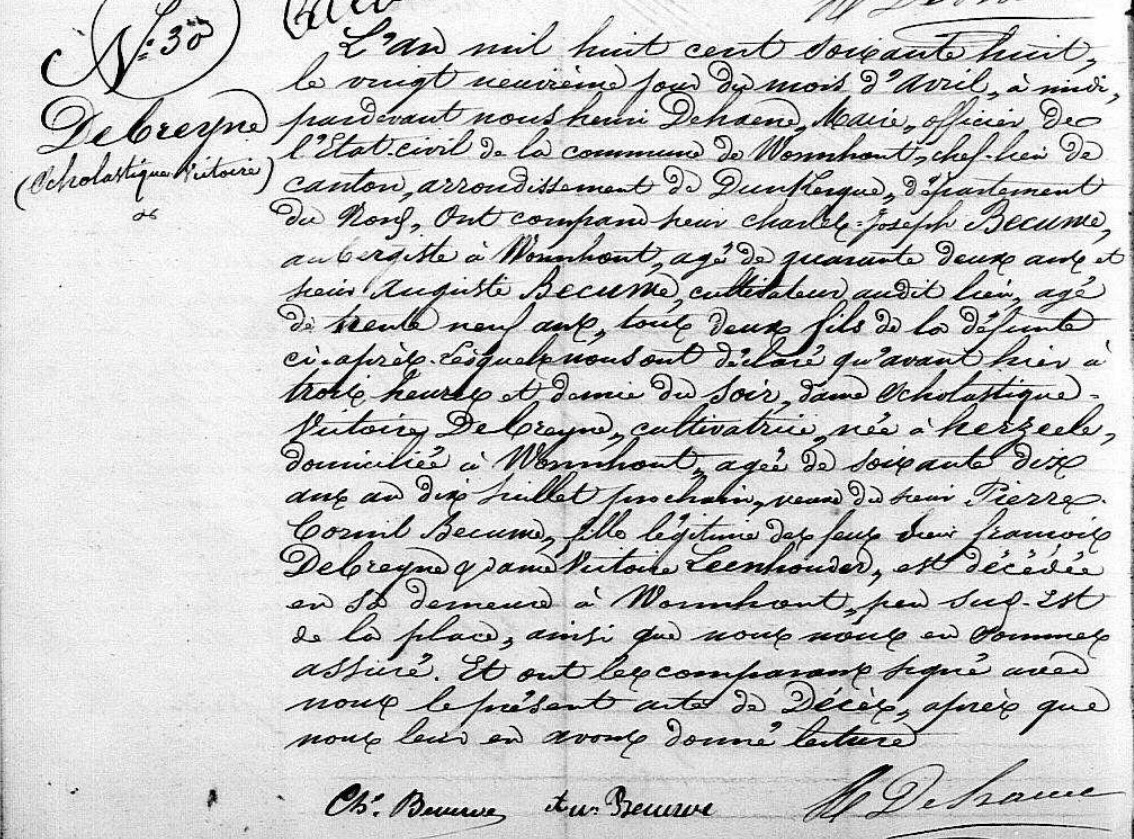 N° 30
DeCreyne
(Scholastique Victoire)
L'an mil huit cent soixante huit,
le vingt neuvième jour du mois d'avril, à midi,
pardevant nous henri Dehaene, Maire, officier de
l'Etat-civil de la commune de Wormhout, chef-lieu de
canton, arrondissement de Dunkerque, département
du Nord, Ont comparu sieur Charles-Joseph Becuwe,
aubergiste à Wormhout, agé de quarante deux ans et
sieur Auguste Becuwe, cultivateur audit lieu, agé
de trente neuf ans, tous deux fils de la défunte
ci-après. Lesquels nous ont déclaré qu'avant hier à
trois heures et demie du soir, dame Scholastique-
Victoire DeCreyne, cultivatrice, née à herzeele,
domiciliée à Wormhout, agée de soixante dix
ans au dix juillet prochain, veuve du sieur Pierre-
Cornil Becuwe, fille légitime des feux sieur françois
DeCreyne & dame Victoire Leenhouder, est décédée
en sa demeure à Wormhout, peu sud-Est
de la place, ainsi que nous nous en sommes
assuré. Et ont les comparans signé avec
nous le présent acte de Décès, après que
nous leur en avons donné lecture
Ch. Becuwe Au Becuwe H Dehaene